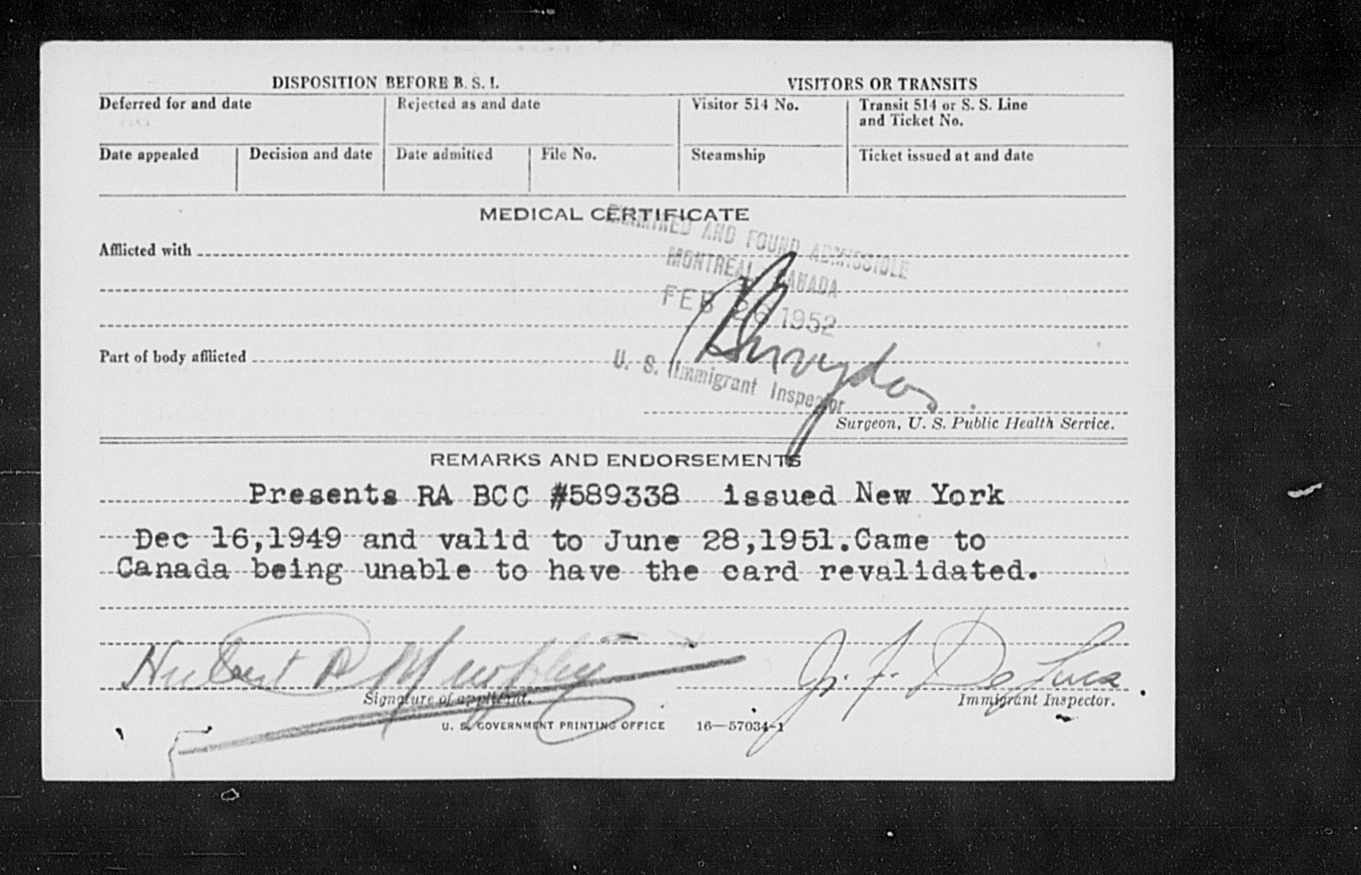 DISPOSITION BEFORE B. S. I. VISITORS OR TRANSITS
Deferred for and date Rejected as and date Visitor 514 No. Transit 514 or S. S. Line
and Ticket No.
Date appealed Decision and date Date admitted File No. Steamship Ticket issued at and date
MEDICAL CERTIFICATE
EXAMINED AND FOUND ADMISSIBLE
Afflicted with
MONTREAL, CANADA
FEB 26 1952
Part of body afflicted
U. S. Immigrant Inspector
Surgeon, U. S. Public Health Service.
REMARKS AND ENDORSEMENTS
Presents RA BCC #589338 issued New York
Dec 16,1949 and valid to June 28,1951.Came to
Canada being unable to have the card revalidated.
Hubert R Murphy J. F. De Luca
Signature of applicant. Immigrant Inspector.
U. S. GOVERNMENT PRINTING OFFICE 16—57034-1